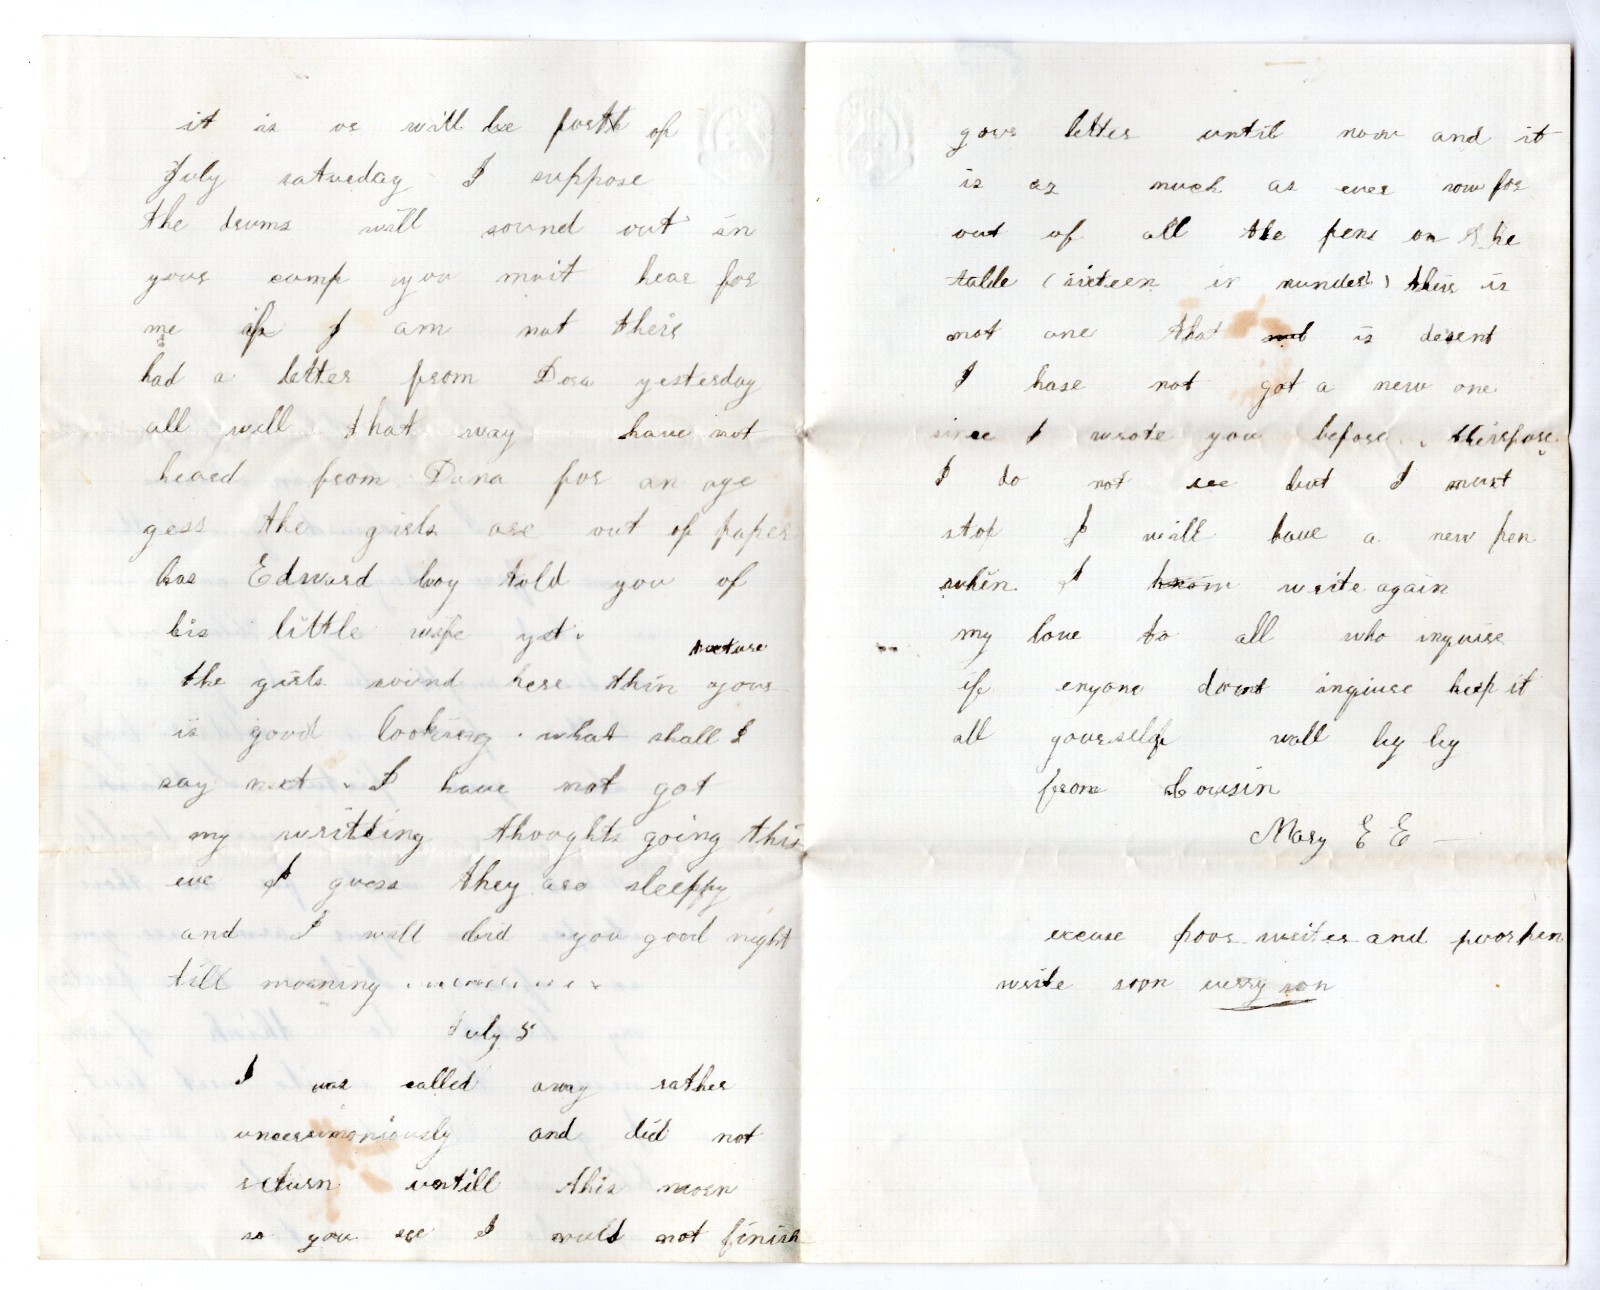 it is or will be forth of
July saturday I suppose
the drums will sound out in
your camp you must hear for
me if I am not their
had a letter from Dora yesterday
all well that way have not
heard from Dana for an age
gess the girls are out of paper
has Edward boy told you of
his little wife yet.
the girls round here thin your
is good looking. what shall I
say next. I have not got
my writting thoughts going this
eve I guess they are sleeppy
and I will bid you good night
till morning
July 5
I was called away rather
uncerimoniously and did not
return untill this morn
so you see I could not finish
your letter until now and it
is as much as ever now for
out of all the pens on the
table (sixteen in number) their is
not one that is desent
I have not got a new one
since I wrote you before. therefore
I do not see but I must
stop I will have a new pen
when I write again
my love to all who inquire
if enyone dount inqiuse keep it
all yourself well by by
from Cousin
Mary E E
excuse poor writer and poor pen
write soon verry son